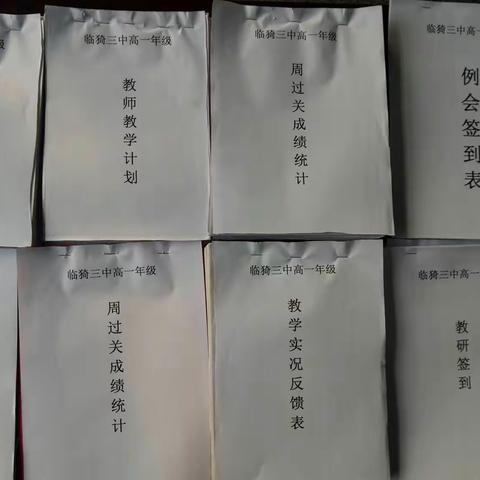 年级
临猗三中高一年级
教师教学计划
临猗三中高一年级
周过关成绩统计
临猗三中高一年级
例会签到表
临猗三中高一年级
周过关成绩统计
临猗三中高一年级
教学实况反馈表
临猗三中高一年级
教研签到